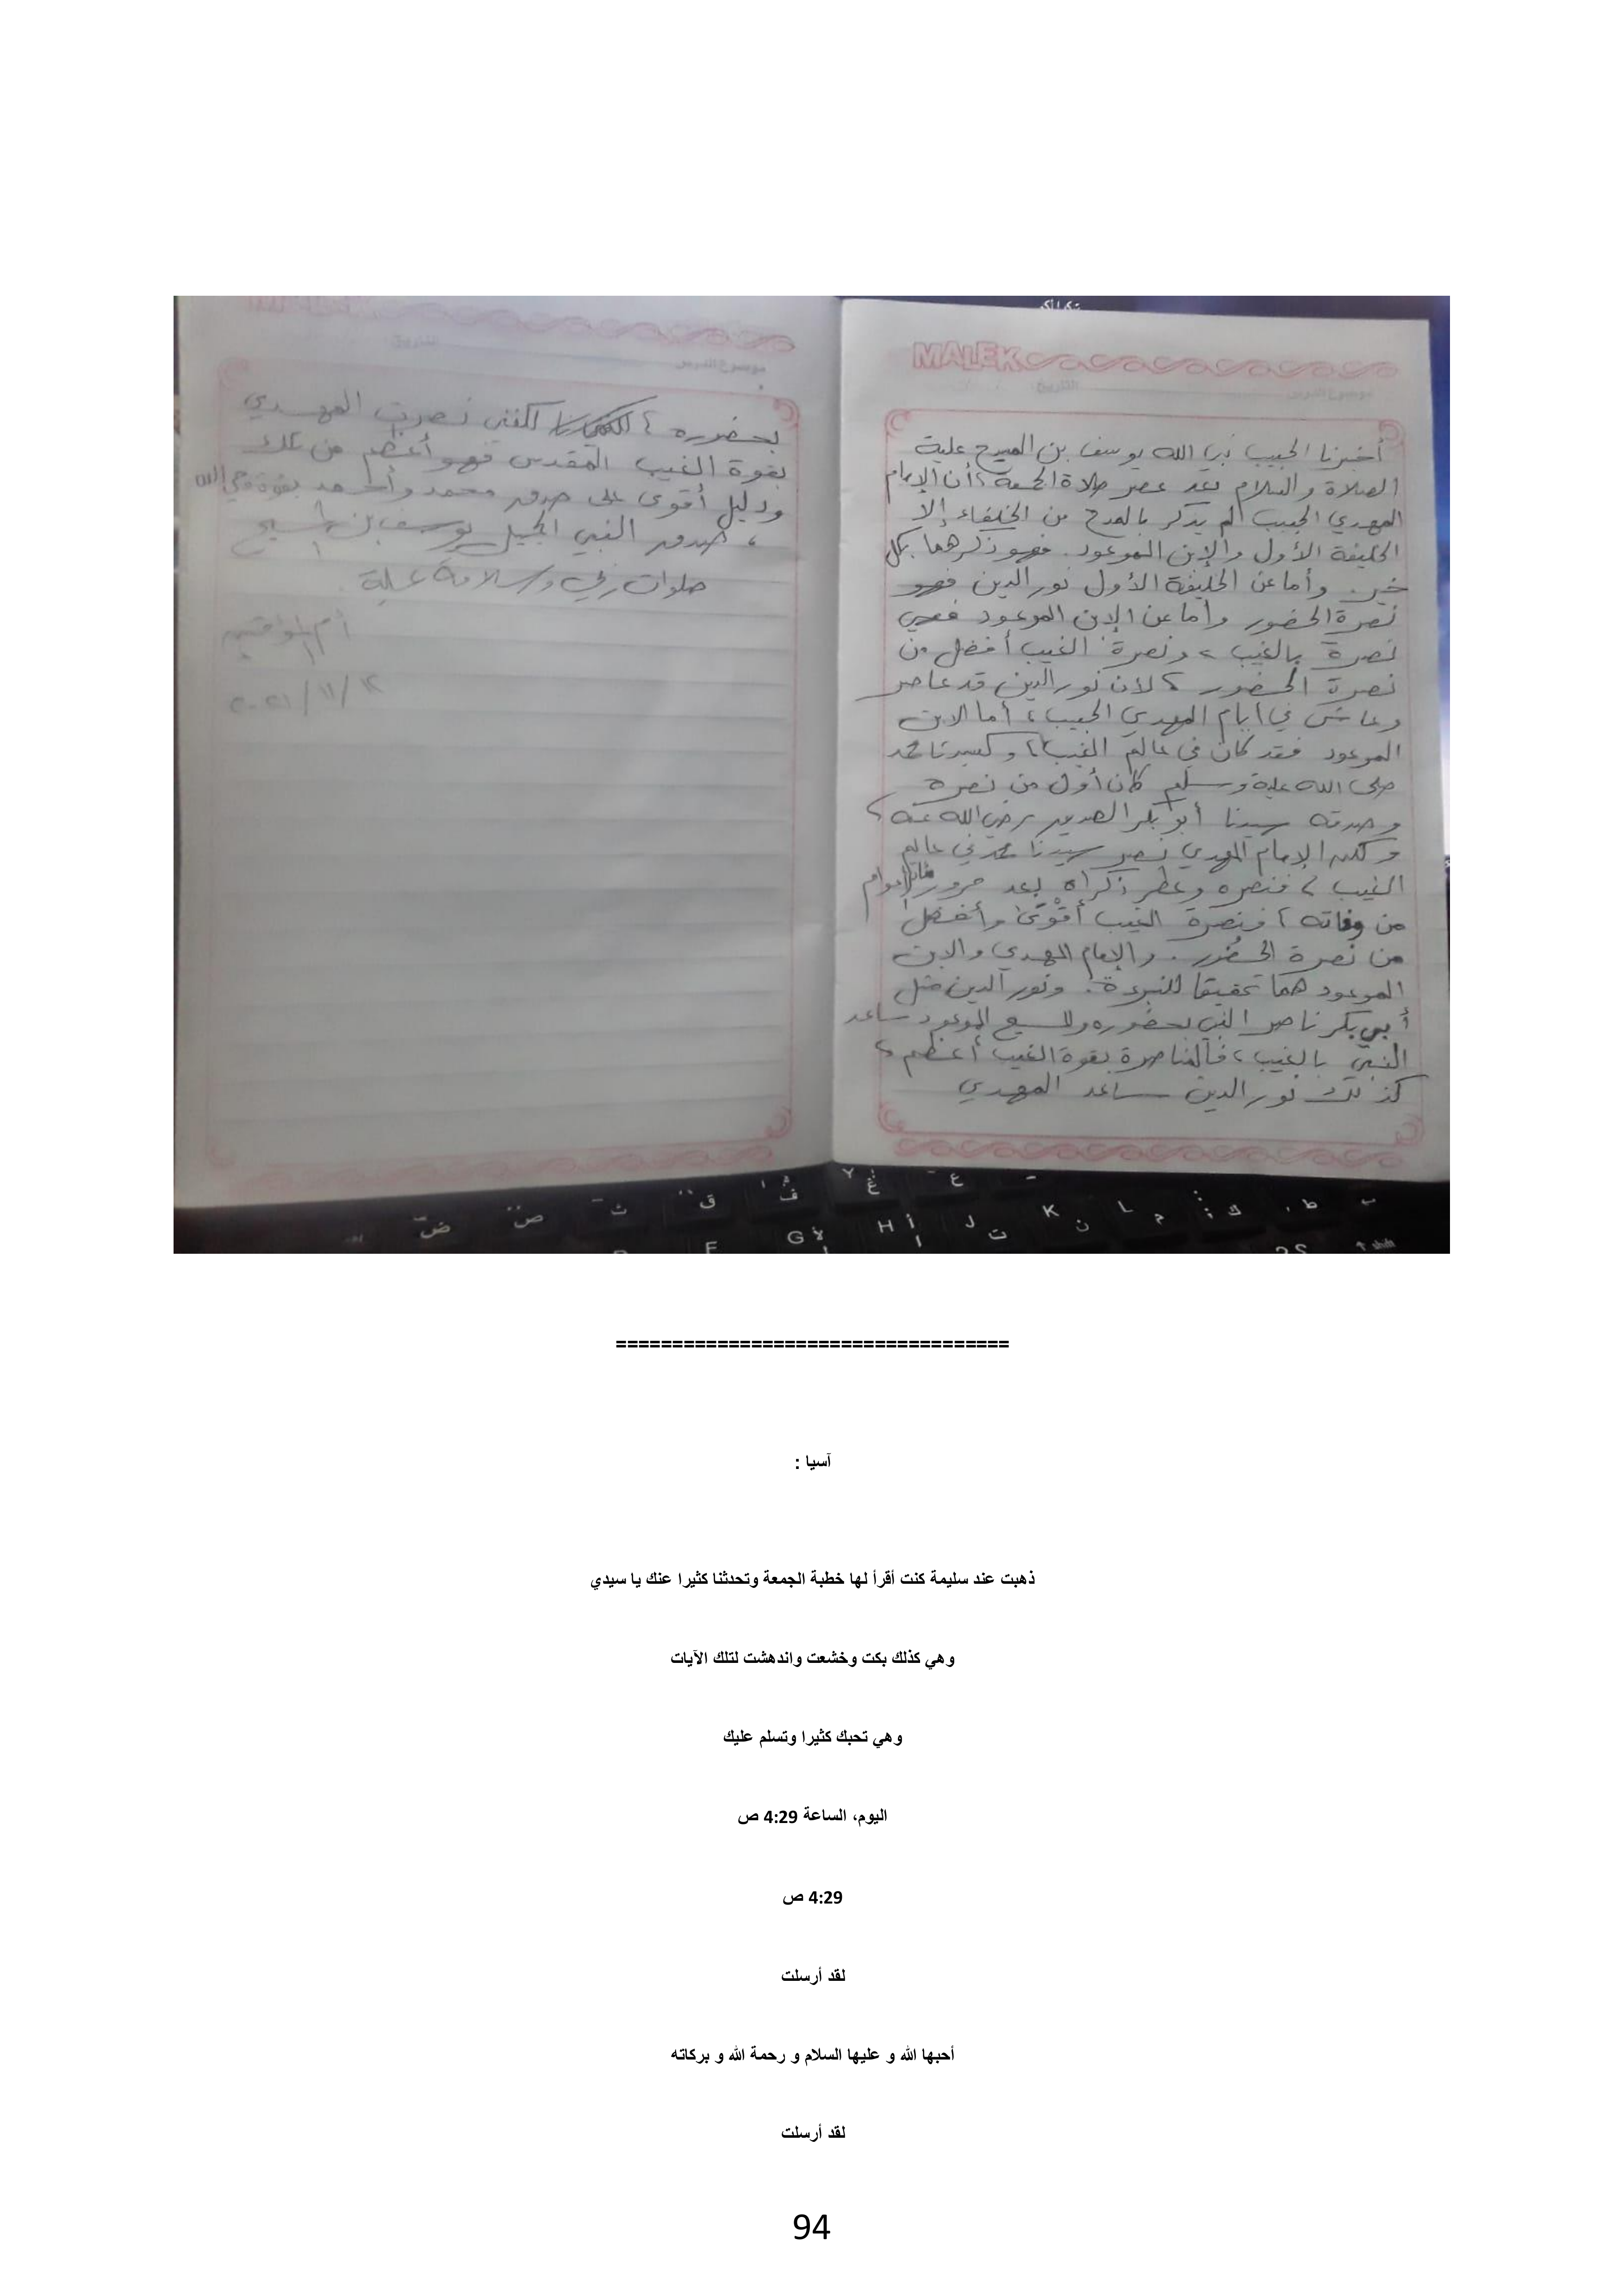 MALEK
أخبرنا الحبيب نبي الله يوسف بن المسيح علية
الصلاة والسلام بعد عصر صلاة الجمعة ، أن الإمام
المهدي الحبيب لم يذكر بالمدح من الخلفاء إلا
الخليفة الأول والإبن الموعود . فهو ذكرهما بكل
خير . وأما عن الخليفة الأول نور الدين فهو
نصرة الحضور وأما عن الإبن الموعود فهي
نصرة بالغيب ، ونصرة الغيب أفضل من
نصرة الحضور ، لان نور الدين قد عاصر
وعاش في أيام المهدي الحبيب ، أما الابن
الموعود فقد كان في عالم الغيب ، وكسيدنا محمد
صلى الله علية وسلم كان أول من نصره
وصدقه سيدنا أبو بكر الصديق رضي الله عنه ،
ولكن الإمام المهدي نصر سيدنا محمد في عالم
الغيب ، فنصره وعطر ذكراه بعد مرور مئات أعوام
من وفاته ، فنصرة الغيب أقوى وأفضل
من نصرة الحضور . والإمام المهدي والابن
الموعود هما تحقيقا للنبوءة . ونور الدين مثل
أبي بكر ناصر النبي بحضوره والمسيح الموعود ساعد
النبي بالغيب ، فالمناصرة بقوة الغيب أعظم ،
كذلك نور الدين ساعد المهدي
بحضوره ، لكن نصرت المهدي
بقوة الغيب المقدس فهو أعظم من تلك
ودليل أقوى على صدق محمد وأحمد بقوة وحي الله
، صدق النبي الجميل يوسف بن المسيح
صلوات ربي وسلامه علية .
٢٠٢١/١١/١٢
=================================
آسيا :
ذهبت عند سليمة كنت أقرأ لها خطبة الجمعة وتحدثنا كثيرا عنك يا سيدي
وهي كذلك بكت وخشعت واندهشت لتلك الآيات
وهي تحبك كثيرا وتسلم عليك
اليوم، الساعة 4:29 ص
4:29 ص
لقد أرسلت
أحبها الله و عليها السلام و رحمة الله و بركاته
لقد أرسلت
94